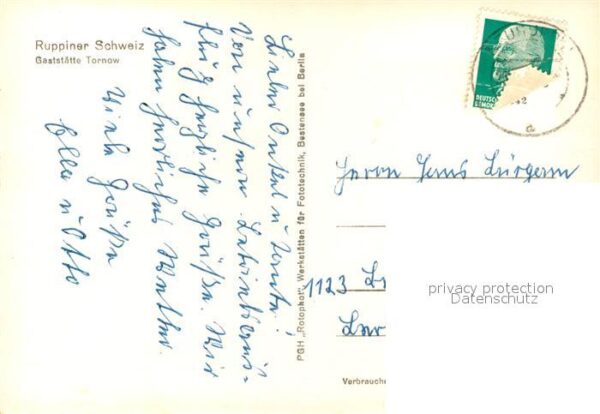 Ruppiner Schweiz
Gaststätte Tornow
Lieber Onkel u. Tante!
Von unserem Betriebsaus-
flug herzliche Grüße. Wir
haben herrliches Wetter.
Viele Grüße
Ella u. Otto
PGH „Rotophot", Werkstätten für Fototechnik, Bestensee bei Berlin
DEUTSCHE
DEMOK
a
Herrn
1123 B
Verbrauche
privacy protection
Datenschutz